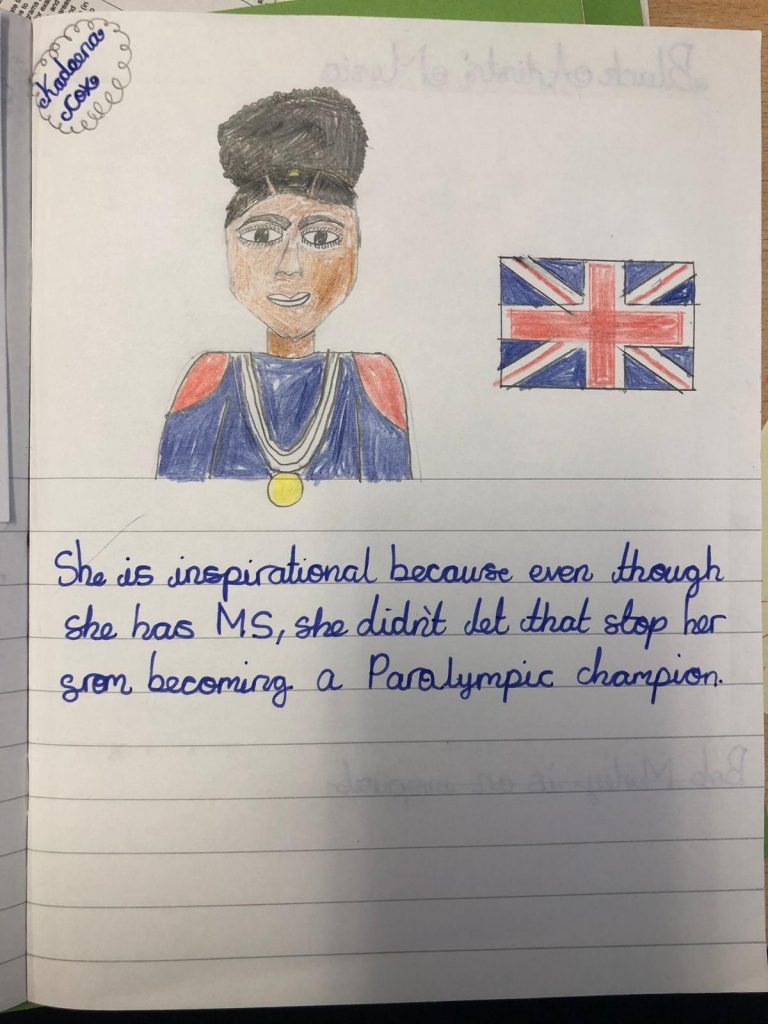 Kadeena
Cox
Black Artists of Music
She is inspirational because even though
she has MS, she didn't let that stop her
from becoming a Paralympic champion.